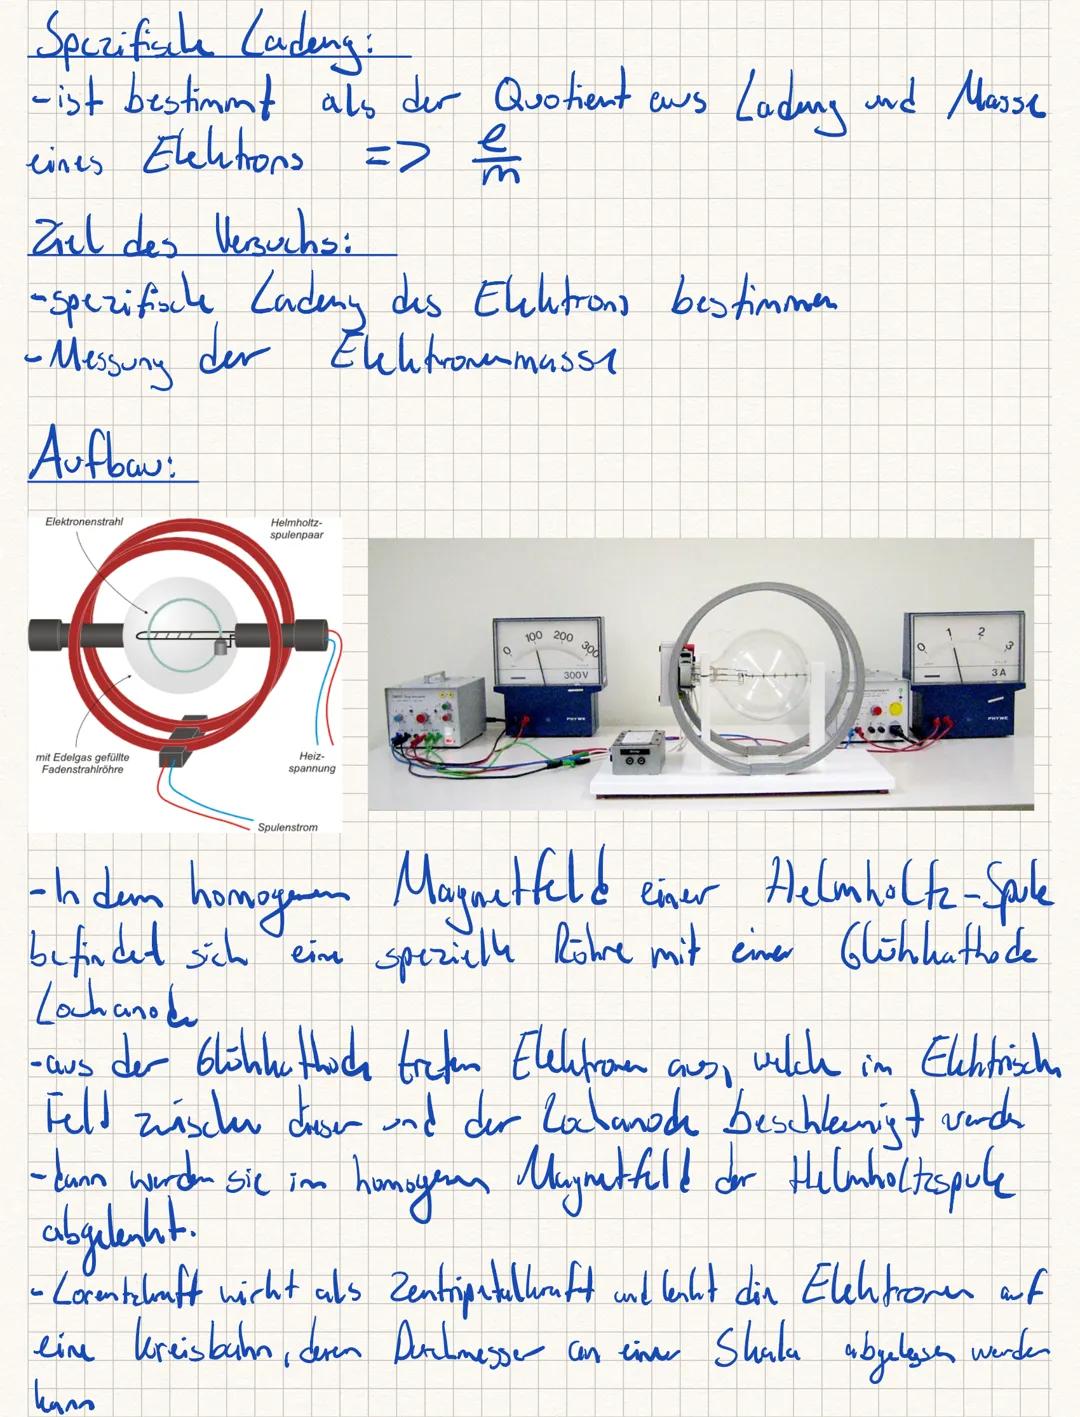 Spezifische Ladung:
-ist bestimmt als der Quotient aus Ladung und Masse
eines Elektrons => e/m
Ziel des Versuchs:
-spezifische Ladung des Elektrons bestimmen
-Messung der Elektronenmasse
Aufbau:
Elektronenstrahl
Helmholtz-
spulenpaar
mit Edelgas gefüllte
Fadenstrahlröhre
Heiz-
spannung
Spulenstrom
0 100 200 300
300V
PHYWE
0 1 2 3
3 A
PHYWE
-In dem homogenen Magnetfeld einer Helmholtz-Spule
befindet sich eine spezielle Röhre mit einer Glühkathode
Lochanode
-aus der Glühkathode treten Elektronen aus, welche im Elektrischen
Feld zwischen dieser und der Lochanode beschleunigt werden
-dann werden sie im homogenen Magnetfeld der Helmholtzspule
abgelenkt.
-Lorentzkraft wirkt als Zentripetalkraft und lenkt die Elektronen auf
eine Kreisbahn, deren Durchmesser an einer Skala abgelesen werden
kann